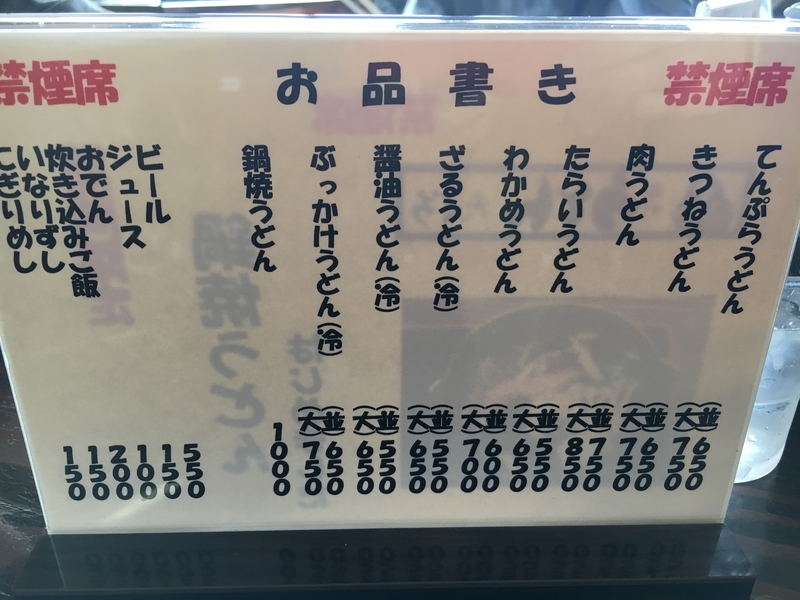 禁煙席
お品書き
禁煙席
てんぷらうどん (並)650 (大)750
きつねうどん (並)650 (大)750
肉うどん (並)750 (大)850
たらいうどん (並)550 (大)650
わかめうどん (並)600 (大)700
ざるうどん(冷) (並)550 (大)650
醤油うどん(冷) (並)550 (大)650
ぶっかけうどん(冷) (並)650 (大)750
鍋焼うどん 1000
ビール 550
ジュース 150
おでん 100
炊き込みご飯 200
いなりずし 150
にぎりめし 150